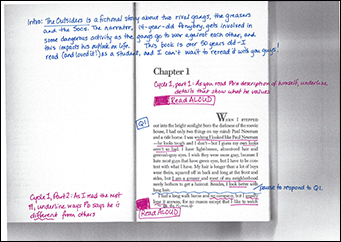 Intro: The Outsiders is a fictional story about two rival gangs, the greasers
and the Socs. The narrator, 14-year-old Ponyboy, gets involved in
some dangerous activity as the gangs go to war against each other, and
this impacts his outlook on life. This book is over 50 years old - I
read (and loved it!) as a student, and I can't wait to reread it with you guys!
Chapter 1
Cycle 1, part 1: As you read Po's description of himself, underline
details that show what he values
Read ALOUD
WHEN I STEPPED
out into the bright sunlight from the darkness of the movie
house, I had only two things on my mind: Paul Newman
and a ride home. I was wishing I looked like Paul Newman
—he looks tough and I don't—but I guess my own looks
aren't so bad. I have light-brown, almost-red hair and
greenish-gray eyes. I wish they were more gray, because I
hate most guys that have green eyes, but I have to be con-
tent with what I have. My hair is longer than a lot of boys
wear theirs, squared off in back and long at the front and
sides, but I am a greaser and most of my neighborhood
rarely bothers to get a haircut. Besides, I look better with
long hair.
Q1
pause to respond to Q1.
I had a long walk home and no company, but I usually
lone it anyway, for no reason except that I like to watch
Cycle 1, Part 2: As I read the next
¶, underline ways Po says he is
different from others
Read ALOUD